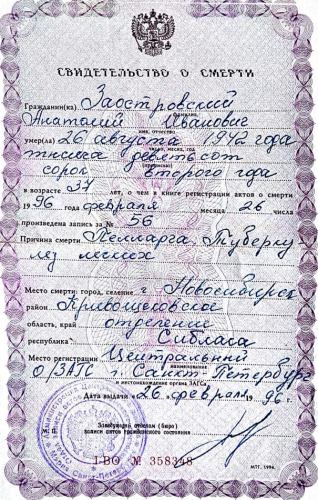 СВИДЕТЕЛЬСТВО О СМЕРТИ
Гражданин(ка) Заостровский
фамилия
Анатолий Иванович
имя, отчество
умер(ла) 26 августа 1942 года
число, месяц, год
тысяча девятьсот
(прописью)
сорок второго года
в возрасте 37 лет, о чем в книге регистрации актов о смерти
1996 года февраля месяца 26 числа
произведена запись за № 56
Причина смерти: Пелларга, Туберку
лёз легких
Место смерти: город, селение г. Новосибирск
район Кривощековское
область, край отделение
республика Сиблага
Место регистрации Центральный
наименование
о/ЗАГС г. Санкт-Петербург
и местонахождение органа ЗАГСа
Дата выдачи «26» февраля 1996 г.
Заведующий отделом (бюро)
М. П. записи актов гражданского состояния
I-ВО № 358348
МТГ. 1994.